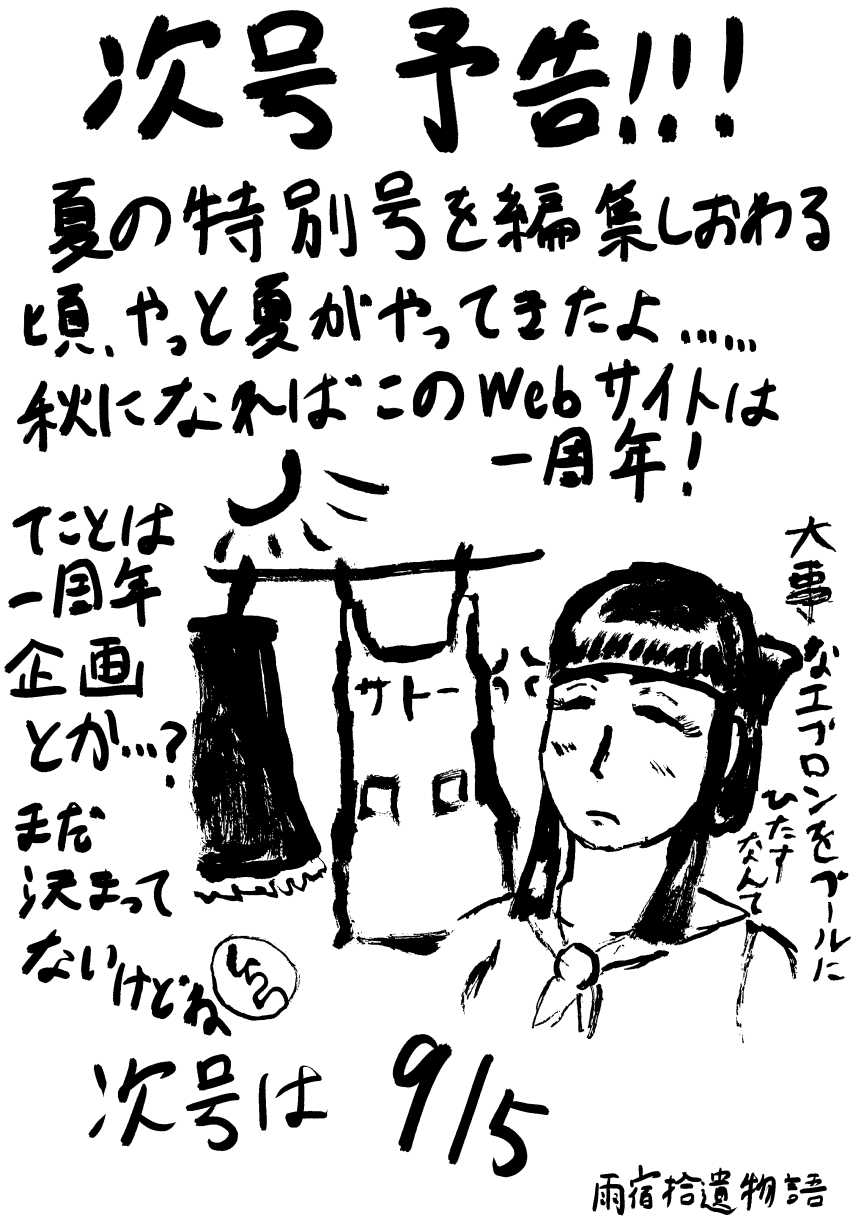 次号予告!!!
夏の特別号を編集しおわる
頃、やっと夏がやってきたよ……
秋になればこのWebサイトは
一周年!
てことは
一周年
企画
とか…?
まだ
決まって
ないけどね
サトー
大事なエプロンをプールに
ひたす
なんて
次号は 9/5
雨宿拾遺物語